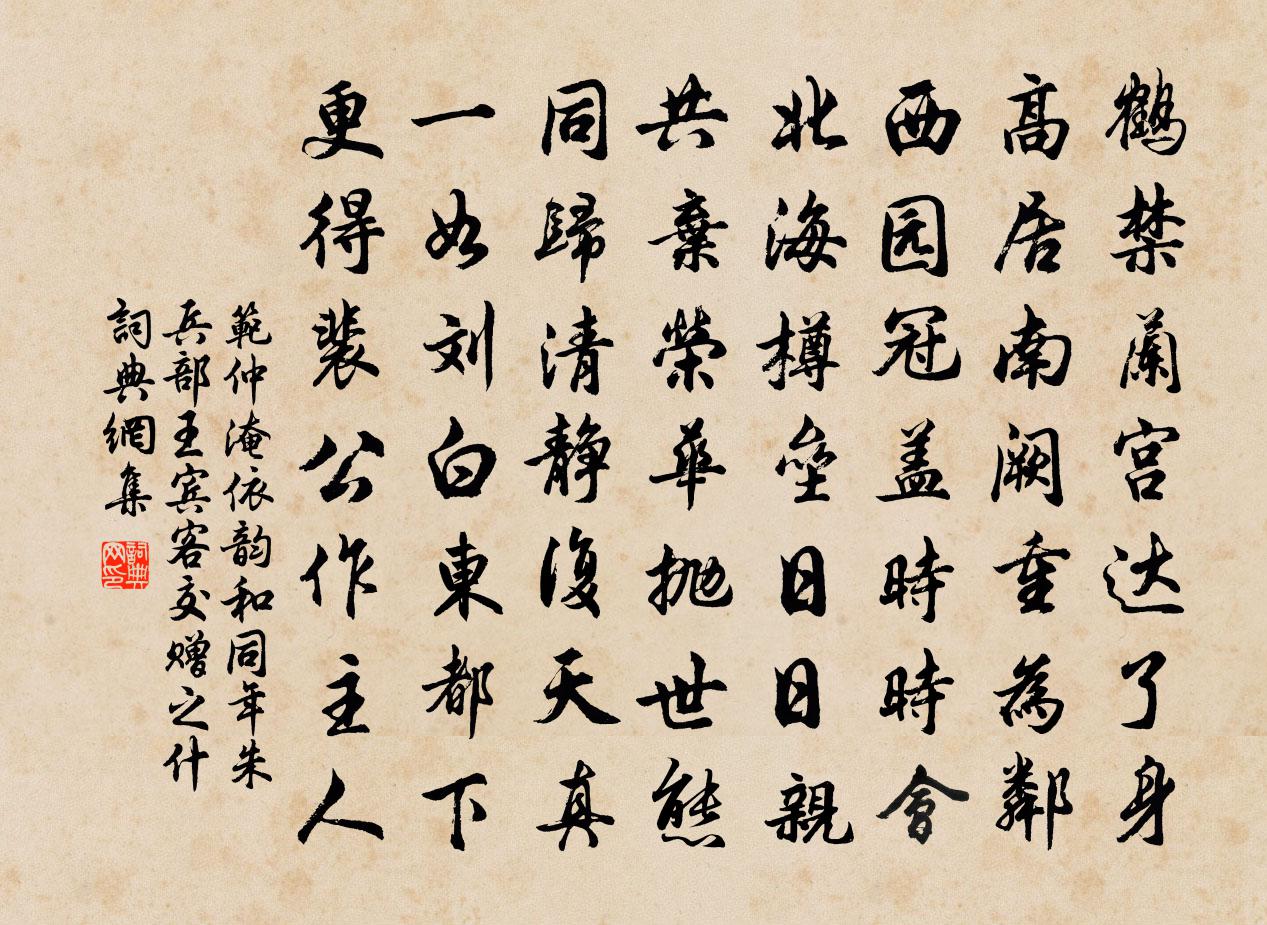 鶴禁蘭宫达了身
高居南阙重為鄰
西园冠盖時時會
北海樽壘日日親
共棄榮華抛世態
同歸清静復天真
一如刘白東都下
更得裴公作主人
範仲淹依韵和同年朱
兵部王宾客交赠之什
詞典網集
詞典网印